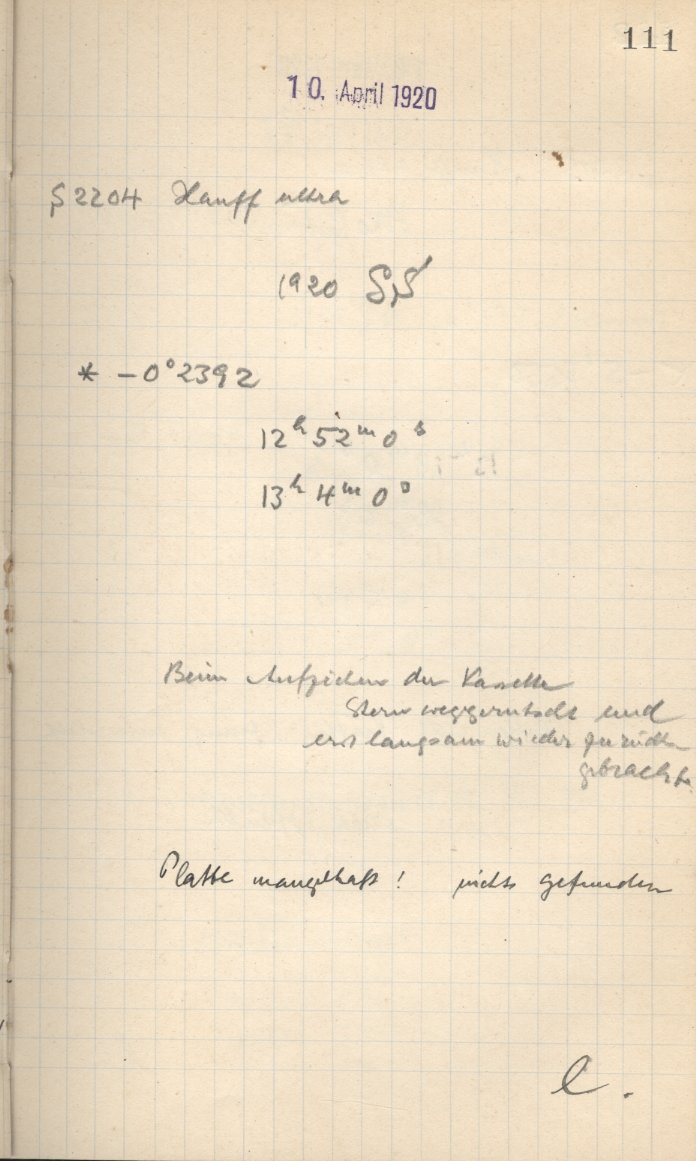 111
10. April 1920
S 2204 Hauff ultra
1920 SS
* -0°2392
12ʰ 52ᵐ 0ˢ
13ʰ 4ᵐ 0ˢ
Beim Aufziehen der Kassette
Stern weggerutscht und
erst langsam wieder zurück
gebracht.
Platte mangelhaft! nichts gefunden